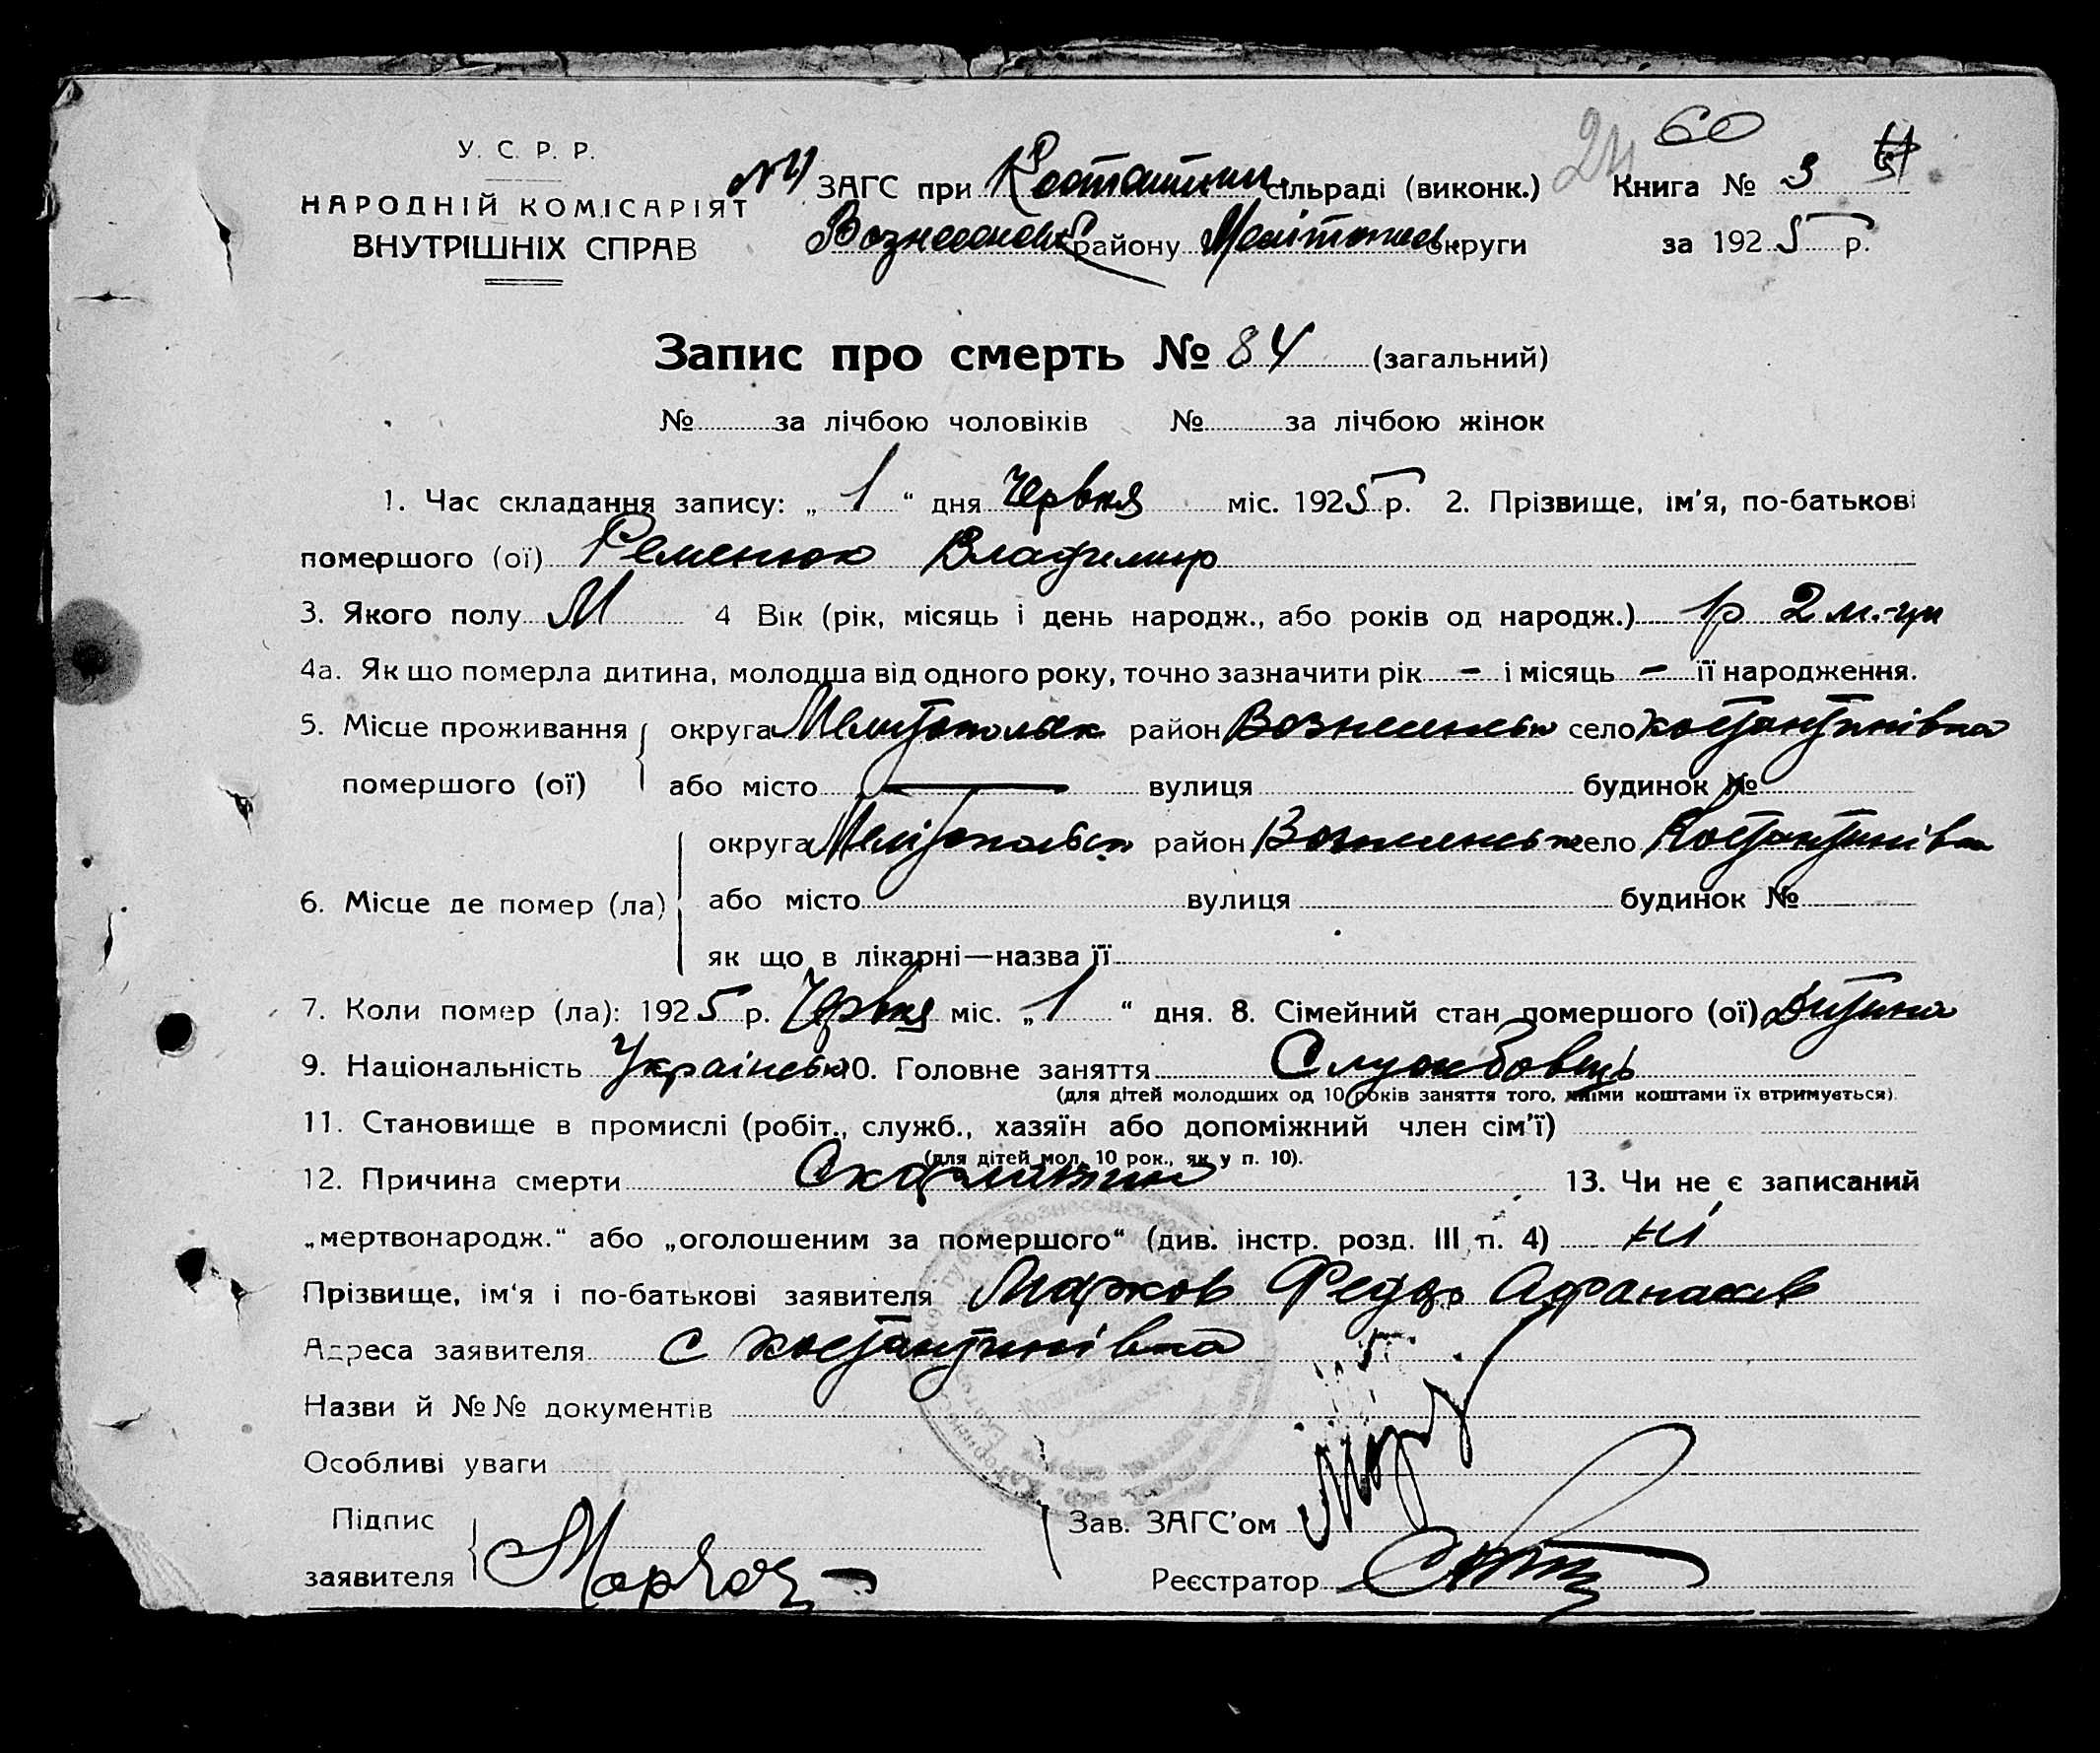 24 60
У. С. Р. Р.
НАРОДНІЙ КОМІСАРІЯТ
ВНУТРІШНІХ СПРАВ
ЗАГС при сільраді (виконк.) Книга № 3
району округи за 1925 р.
Запис про смерть № 84 (загальний)
№ за лічбою чоловіків № за лічбою жінок
1. Час складання запису: „ 1 “ дня Червня міс. 1925 р. 2. Прізвище, ім'я, по-батькові
помершого (ої) Ременюк Владимир
3. Якого полу М 4 Вік (рік, місяць і день народж., або років од народж.) 1 р 2 м-ци
4а. Як що померла дитина, молодша від одного року, точно зазначити рік - і місяць - її народження.
5. Місце проживання округа район село Костянтинівка
помершого (ої) або місто — вулиця будинок №
округа район село Костянтинівка
6. Місце де помер (ла) або місто вулиця будинок №
як що в лікарні—назва її
7. Коли помер (ла): 1925 р. Червня міс. „ 1 “ дня. 8. Сімейний стан помершого (ої) Дитина
9. Національність 10. Головне заняття Службовець
(для дітей молодших од 10 років заняття того, чиїми коштами їх втримується).
11. Становище в промислі (робіт., служб., хазяїн або допоміжний член сім'ї)
(для дітей мол. 10 рок., як у п. 10).
12. Причина смерти 13. Чи не є записаний
„мертвонародж.“ або „оголошеним за помершого“ (див. інстр. розд. III п. 4) ні
Прізвище, ім'я і по-батькові заявителя
Адреса заявителя с Костянтинівка
Назви й №№ документів
Особливі уваги
Підпис
заявителя
Зав. ЗАГС'ом
Реєстратор